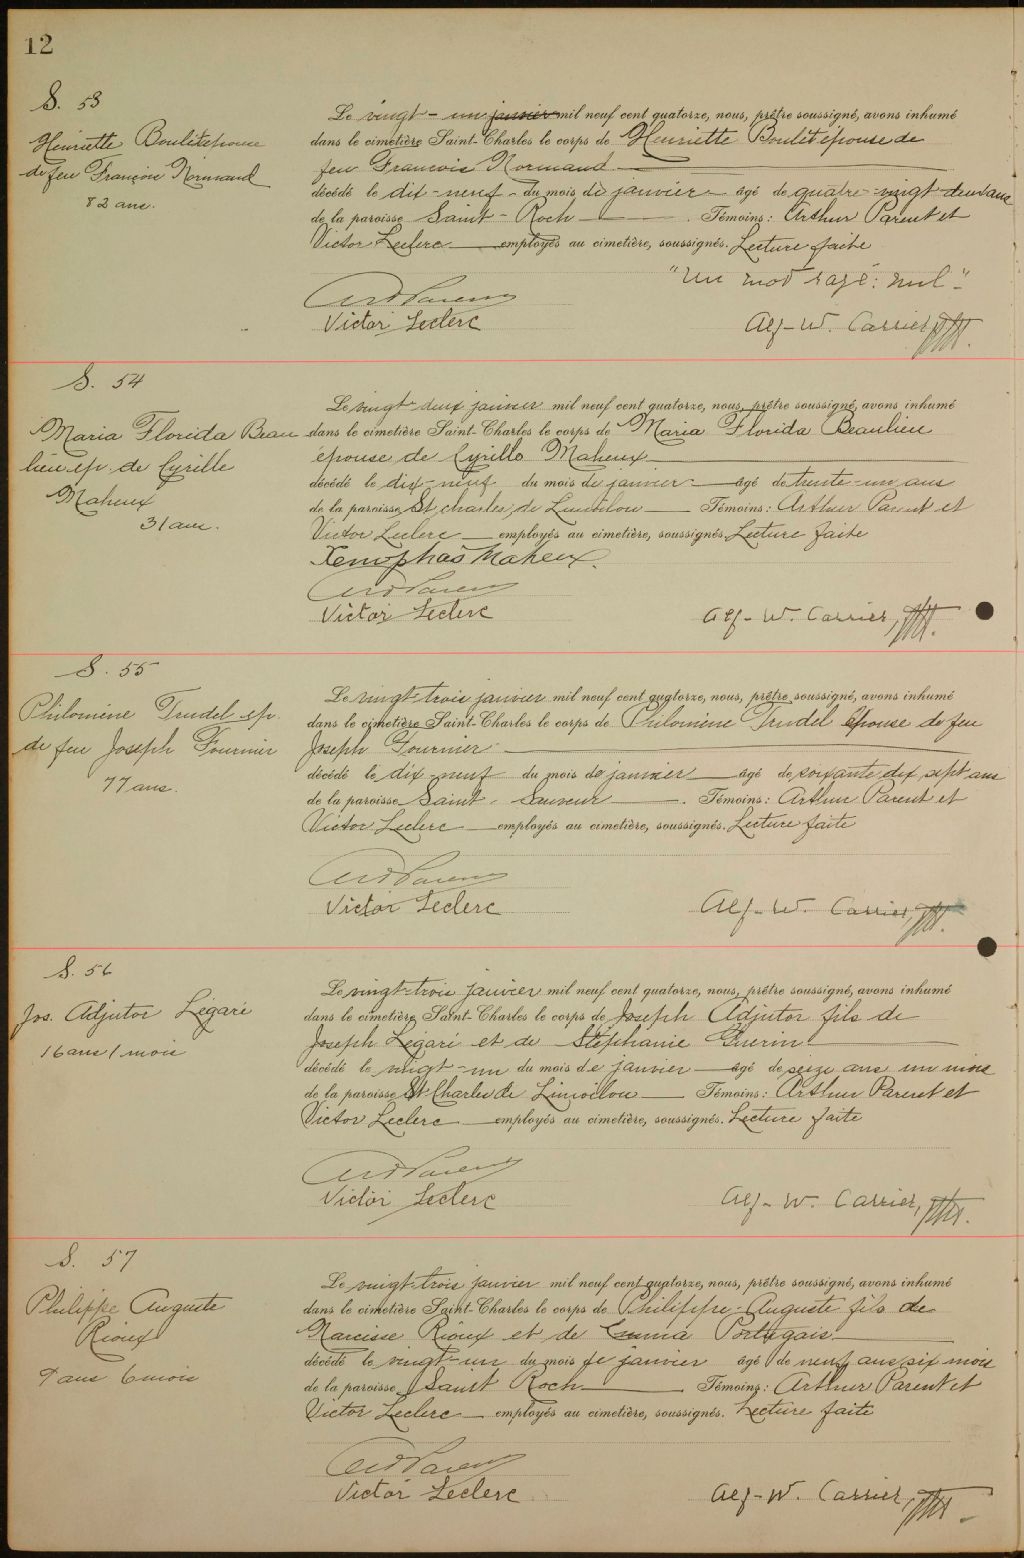 12
S. 53
Henriette Boulet épouse
de feu François Normand
82 ans.
Le vingt-un janvier mil neuf cent quatorze, nous, prêtre soussigné, avons inhumé
dans le cimetière Saint-Charles le corps de Henriette Boulet épouse de
feu Francois Normand
décédé le dix-neuf du mois de janvier âgé de quatre-vingt deux ans
de la paroisse Saint-Roch. Témoins: Arthur Parent et
Victor Leclerc employés au cimetière, soussignés. Lecture faite
"Un mot rayé: nul".
Art Parent
Victor Leclerc
Alf-W. Carrier, ptre.
S. 54
Maria Florida Beau
lieu ep. de Cyrille
Maheux
31 ans.
Le vingt-deux janvier mil neuf cent quatorze, nous, prêtre soussigné, avons inhumé
dans le cimetière Saint-Charles le corps de Maria Florida Beaulieu
épouse de Cyrille Maheux
décédé le dix-neuf du mois de janvier âgé de trente-un ans
de la paroisse St charles, de Limoilou Témoins: Arthur Parent et
Victor Leclerc employés au cimetière, soussignés. Lecture faite
Xenophas Maheux.
Art Parent
Victor Leclerc
Alf-W. Carrier, ptre.
S. 55
Philomène Trudel ep.
de feu Joseph Fournier
77 ans.
Le vingt-trois janvier mil neuf cent quatorze, nous, prêtre soussigné, avons inhumé
dans le cimetière Saint-Charles le corps de Philomène Trudel épouse de feu
Joseph Fournier
décédé le dix-neuf du mois de janvier âgé de soixante dix sept ans
de la paroisse Saint-Sauveur. Témoins: Arthur Parent et
Victor Leclerc employés au cimetière, soussignés. Lecture faite
Art Parent
Victor Leclerc
Alf-W. Carrier, ptre.
S. 56
Jos. Adjutor Légaré
16 ans 1 mois
Le vingt-trois janvier mil neuf cent quatorze, nous, prêtre soussigné, avons inhumé
dans le cimetière Saint-Charles le corps de Joseph Adjutor fils de
Joseph Légaré et de Stéphanie Guerin
décédé le vingt-un du mois de janvier âgé de seize ans un mois
de la paroisse St Charles de Limoilou Témoins: Arthur Parent et
Victor Leclerc employés au cimetière, soussignés. Lecture faite
Art Parent
Victor Leclerc
Alf-W. Carrier, ptre.
S. 57
Philippe Auguste
Rioux
9 ans 6 mois
Le vingt-trois janvier mil neuf cent quatorze, nous, prêtre soussigné, avons inhumé
dans le cimetière Saint-Charles le corps de Philippe-Auguste fils de
Narcisse Rioux et de Emma Portugais
décédé le vingt-un du mois de janvier âgé de neuf ans six mois
de la paroisse Saint Roch Témoins: Arthur Parent et
Victor Leclerc employés au cimetière, soussignés. Lecture faite
Art Parent
Victor Leclerc
Alf-W. Carrier, ptre.